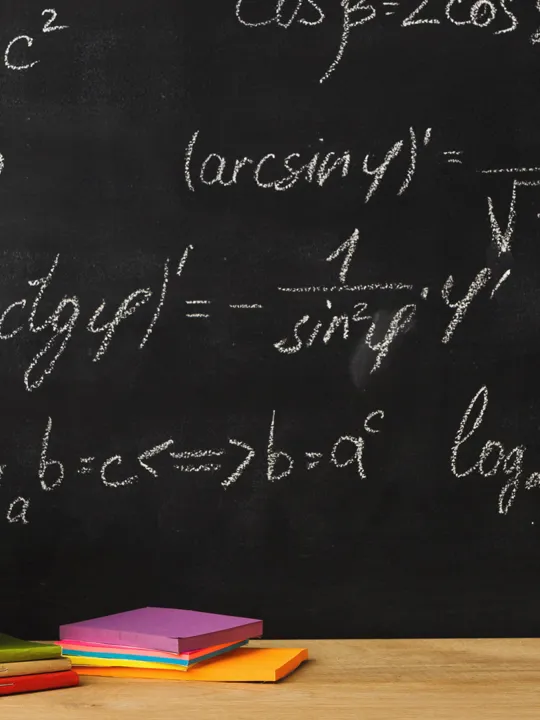 c²
cos β = 2 cos
(arcsin φ)' =
√
(ctg φ)' = - 1/sin²φ · φ'
a b = c <=> b = a^c
log a